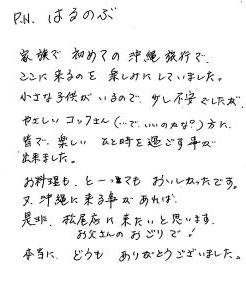 P.N. はるのぶ
家族で 初めての 沖縄 旅行で、
ここに 来るのを 楽しみに していました。
小さな 子供が いるので、少し 不安でしたが、
やさしい コックさん(…で、いいのかな?) 方に、
皆で、楽しい ひと時を 過ごす 事が
出来ました。
お料理も、と〜っても おいしかったです。
又、沖縄に 来る事が あれば、
是非、松尾店に 来たいと 思います。
お父さんの おごりで!
本当に、どうも ありがとう ございました。